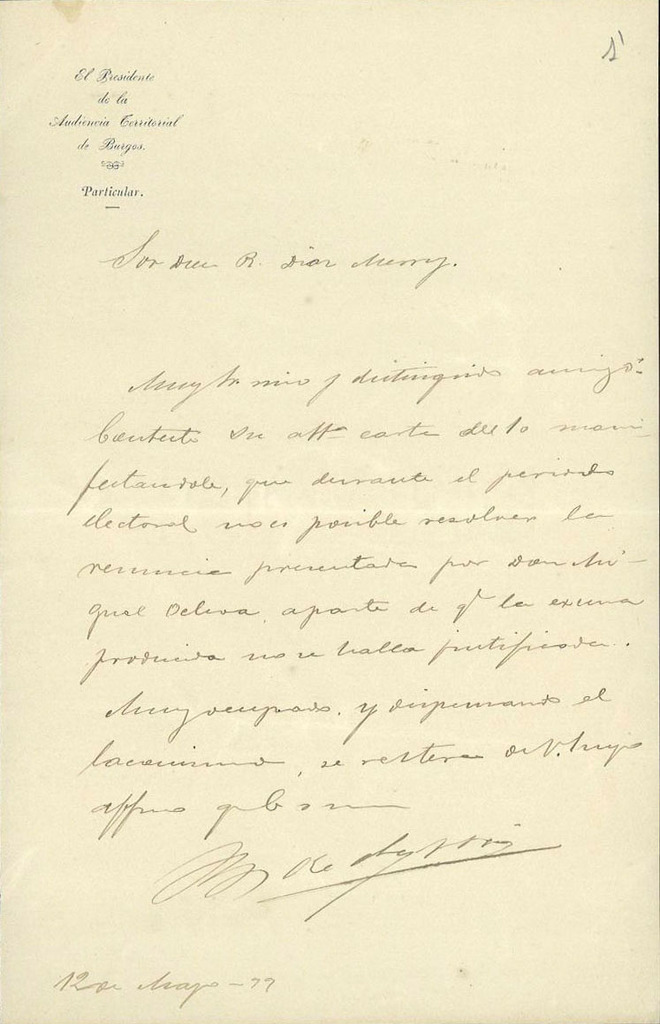 1
El Presidente
de la
Audiencia Territorial
de Burgos.
Particular.
Sor Don R. Diaz Merry.
Muy Sr mio y distinguido amigo:
Contesto su attª carta del 10 mani-
festandole, que durante el periodo
electoral no es posible resolver la
renuncia presentada por Don Mi-
guel Deliva, aparte de qe la excusa
producida no se halla justificada.
Muy ocupado, y dispensando el
laconismo, se reitera de V. suyo
affmo q b s m
12 de Mayo - 99